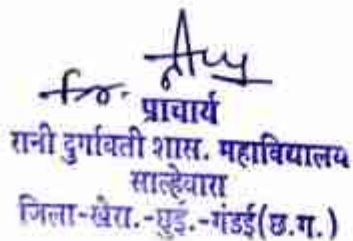 for.
प्राचार्य
रानी दुर्गावती शास. महाविद्यालय
साल्हेवारा
जिला-खैरा.-छुई.-गंडई(छ.ग.)